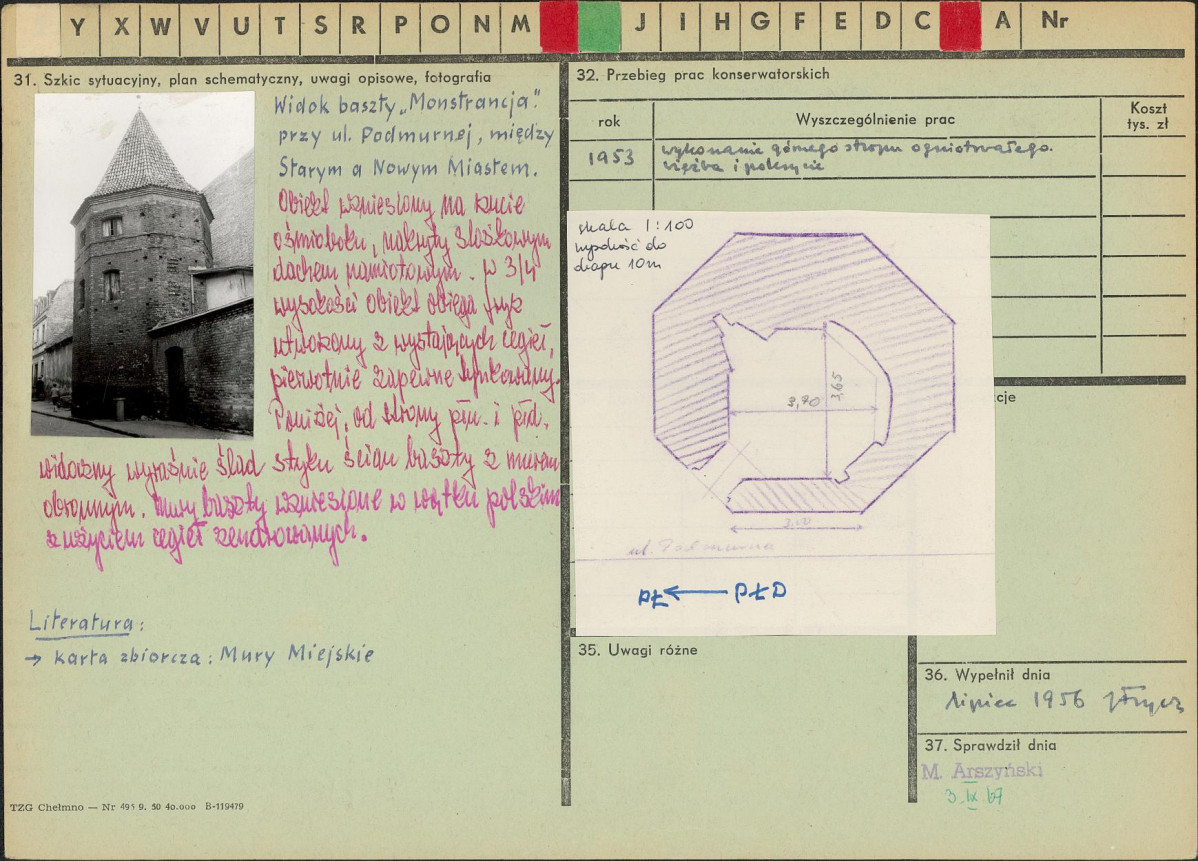 Y X W V U T S R P O N M J I H G F E D C A Nr
31. Szkic sytuacyjny, plan schematyczny, uwagi opisowe, fotografia
Widok baszty „Monstrancja".
przy ul. Podmurnej, między
Starym a Nowym Miastem.
Obiekt wzniesiony na rzucie
ośmioboku, nakryty
dachem namiotowym. W 3/4
wysokości obiekt obiega fryz
utworzony z wystających cegieł,
pierwotnie zapewne tynkowany.
Poniżej, od strony płn. i płd.
widoczny wyraźnie ślad styku ścian baszty z murem
obronnym. Mury baszty wzniesione w wątku polskim
z użyciem cegieł zendrowanych.
Literatura:
→ karta zbiorcza: Mury Miejskie
TZG Chełmno — Nr 495 9. 50 40.000 B-119479
32. Przebieg prac konserwatorskich
rok
Wyszczególnienie prac
Koszt
tys. zł
1953
wykonanie górnego stropu ogniotrwałego.
więźba i pokrycie
skala 1:100
wysokość do
okapu 10m
3,90
3,65
3,00
ul. Podmurna
PŁ ← PŁD
cje
35. Uwagi różne
36. Wypełnił dnia
lipiec 1956
37. Sprawdził dnia
M. Arszyński
3.IX.67